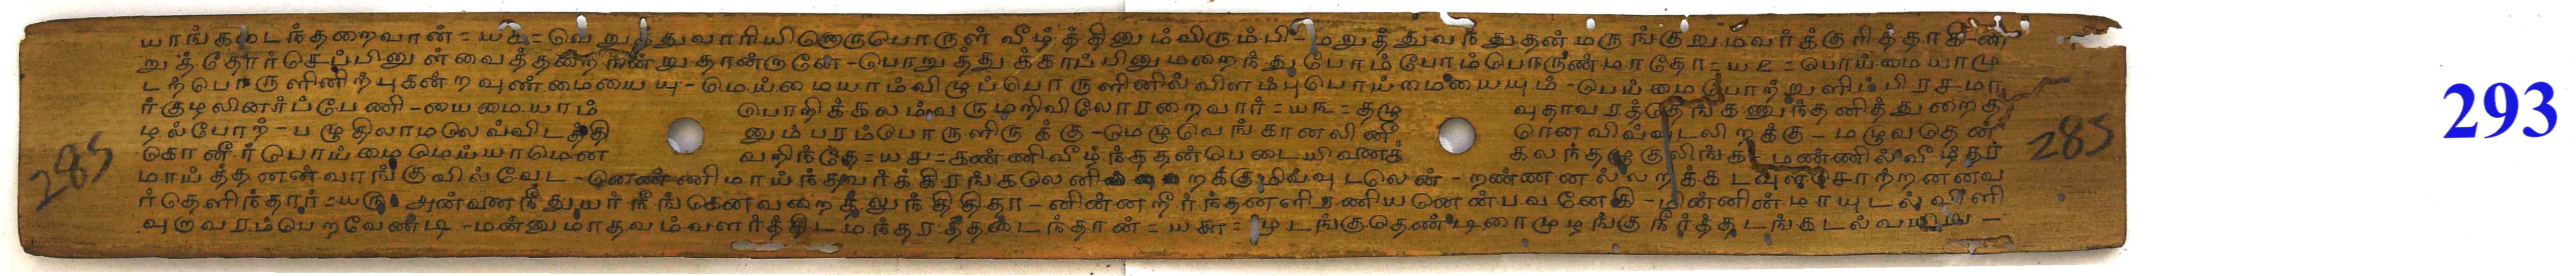 யாங்கடைந்தறைவான் = யக = வெறுத்துவாரியினொருபொருள் வீழ்த்தினும்விரும்பி - மறுத்துவந்துதன் மருங்குறுமவர்க்குரித்தாகி - ன
றுத்தோர்செப்பினுள்வைத்த தான்குனே - பொறுத்து க்காப்பினுமறைந்துபோம் போம்பொருண்மாதோ = ய௨ = பொய்மை யாமு
டற்பொருளினிற்புகன்ற வுண்மையையு - மெய்மையாம்விழுப்பொருளினில்விளம்புபொய்மையையும் - பெய்மை போற்றளிம்பிரசமா
ர்குழலினர்ப்பேணி - யைமையாம் பொறிக்கலம்வருமறிவிலோரறைவார் = ய௩ = தழு வுதாவரத்
ழல்போற் - பழுதிலாமலெவ்விடத்தி னும்பரம்பொருளிருக்கு - மெழுவெங்கானலினீ ரெனவிவ்வுடலிறக்கு - மழுவதென்
கொனீர்பொய்மைமெய்யாமென வறிந்தே = ய௪ = கண்ணிவீழ்ந்ததன்பெடையிவணக் கலந்தழுகுலிங்க - மண்ணில்வீழ்தர்
மாய்த்தனன்வாங்குவில்வேட - னெண்ணிமாய்ந்தவர்க்கிரங்கலெனி றக்குமிவ்வுடலென் - றண்ணனல்லறக்கடவுள்சொற்றனனவ
ர்தெளிந்தார் = ய௫ அன்வணநீதுயர் நீங்கெனவறைத்துந்திதிதா - னின்னநீர்ந்தனளிரணியனென்பவனேகி - மின்னின்மாயுடல் விளி
வுறுவரம்பெறவேண்டி - மன்னுமாதவம்வளர்த்திடமந்தரத்தடைந்தான் = ய௬ = முடங்குதெண்டிரைமுழங்கு நீர்த்தடங்கடல்
285
285
293